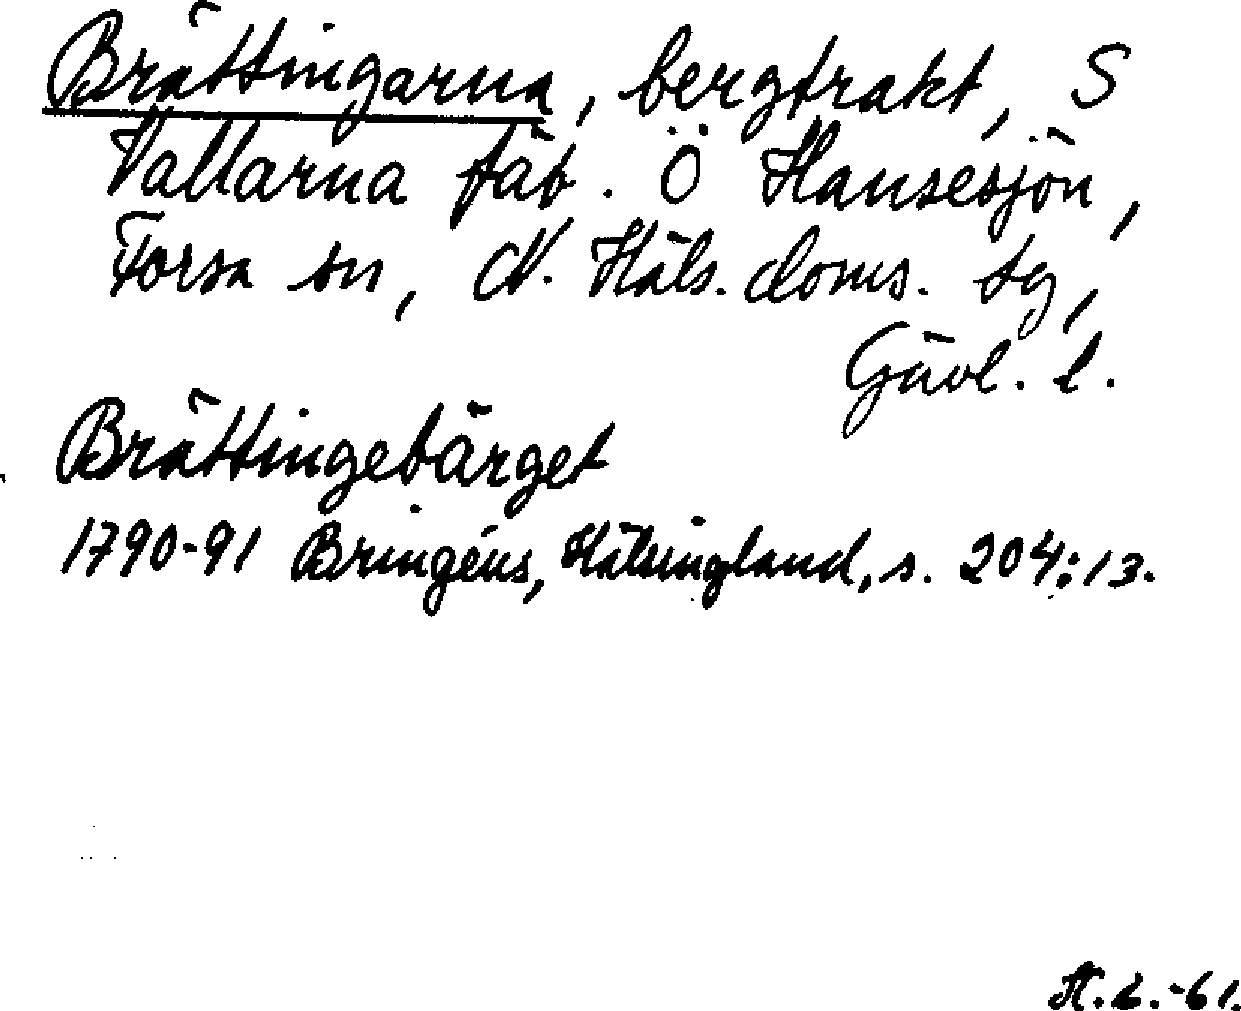 Brättingarna, bergtrakt, S
Vallarna fäb. Ö Hansesjön,
Forsa sn, N. Häls. doms. tg,
Gävl. l.
Brättingebärget
1790-91 Bringéus, Hälsingland, s. 204:13.
H.L.-61.